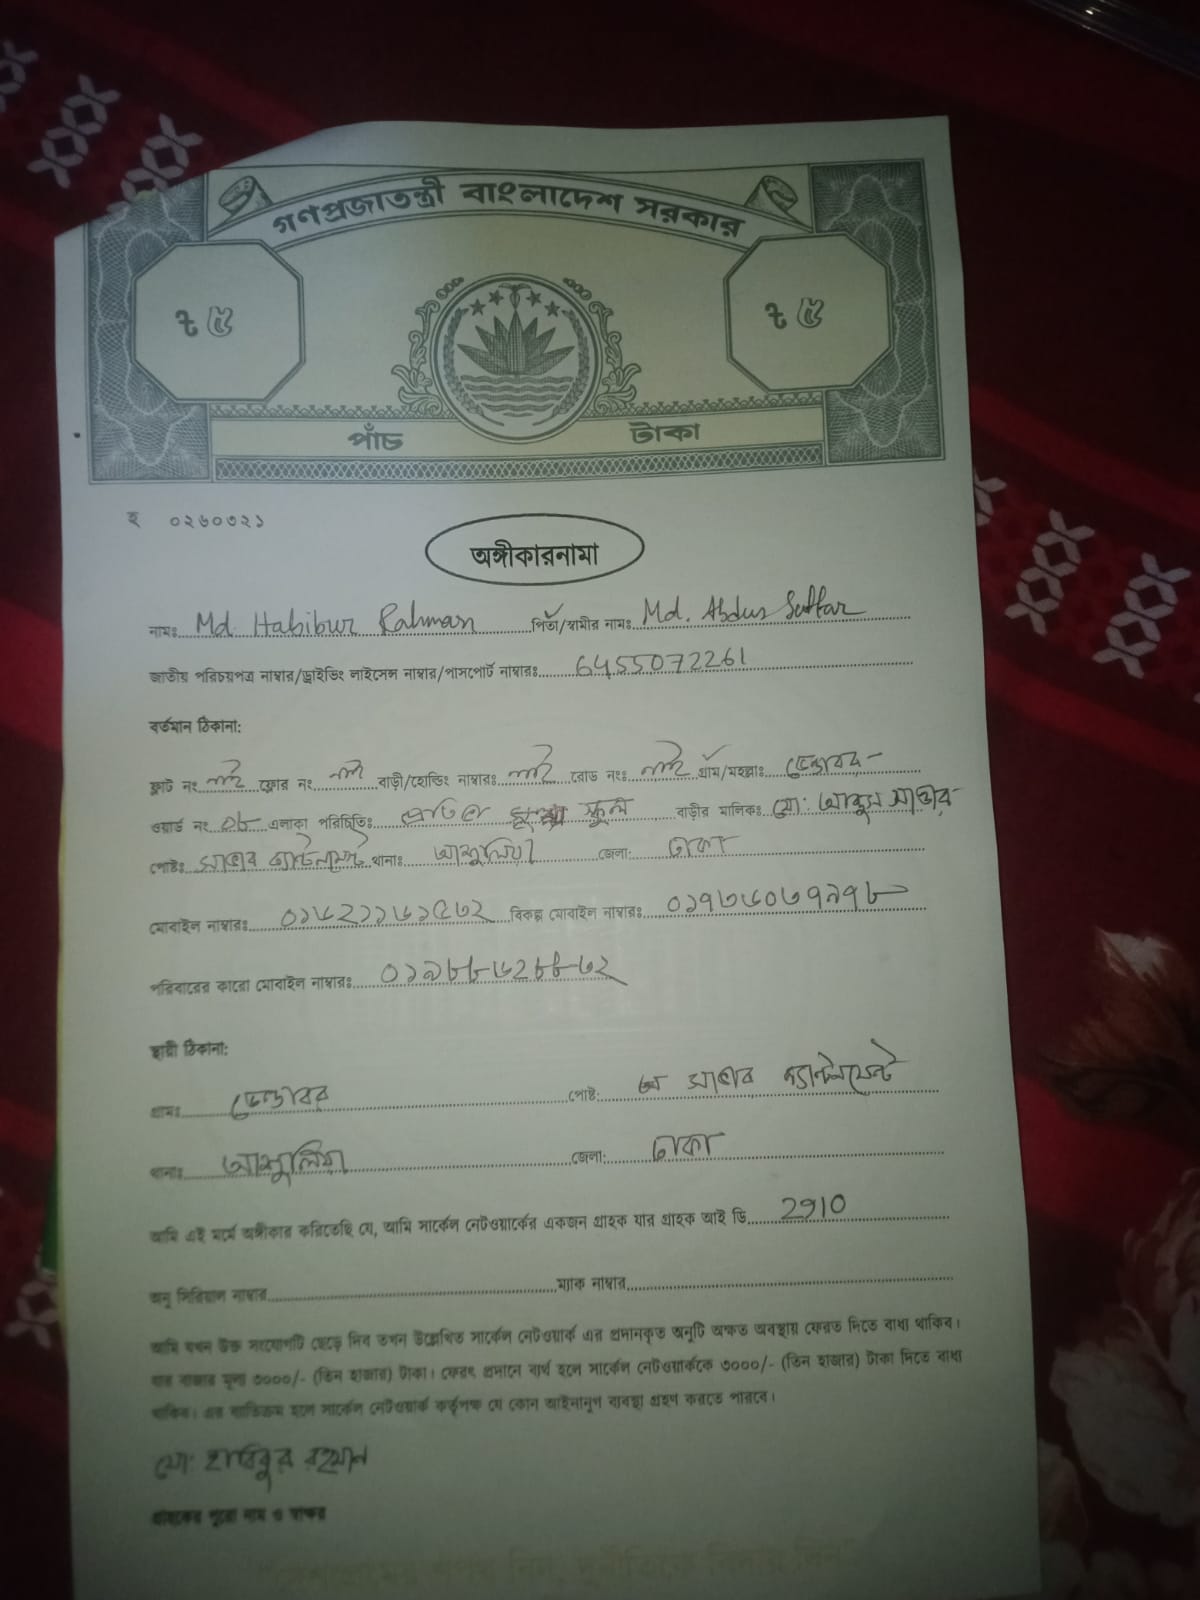 গণপ্রজাতন্ত্রী বাংলাদেশ সরকার
৳ ৫ ৳ ৫
পাঁচ টাকা
হ ০২৬০৩২১
অঙ্গীকারনামা
নামঃ Md. Habibur Rahman পিতা/স্বামীর নামঃ Md. Abdus Sattar
জাতীয় পরিচয়পত্র নাম্বার/ড্রাইভিং লাইসেন্স নাম্বার/পাসপোর্ট নাম্বারঃ 6455072261
বর্তমান ঠিকানা:
ফ্লাট নং নাই ফ্লোর নং নাই বাড়ী/হোল্ডিং নাম্বারঃ নাই রোড নংঃ নাই গ্রাম/মহল্লাঃ ডেন্ডাবর
ওয়ার্ড নং ০৮ এলাকা পরিচিতিঃ স্কুল বাড়ীর মালিকঃ মো: আব্দুস সাত্তার
পোষ্টঃ সাভার ক্যান্টনমেন্ট থানাঃ আশুলিয়া জেলা: ঢাকা
মোবাইল নাম্বারঃ ০১৬২১১৬১৫৩২ বিকল্প মোবাইল নাম্বারঃ ০১৭৩৬০৩৭৯৭৮
পরিবারের কারো মোবাইল নাম্বারঃ ০১৯৮৮৬২৮৮৩২
স্থায়ী ঠিকানা:
গ্রামঃ ডেন্ডাবর পোষ্ট: সাভার ক্যান্টনমেন্ট
থানাঃ আশুলিয়া জেলা: ঢাকা
আমি এই মর্মে অঙ্গীকার করিতেছি যে, আমি সার্কেল নেটওয়ার্কের একজন গ্রাহক যার গ্রাহক আই ডি 2910
অনু সিরিয়াল নাম্বার ম্যাক নাম্বার
আমি যখন উক্ত সংযোগটি ছেড়ে দিব তখন উল্লেখিত সার্কেল নেটওয়ার্ক এর প্রদানকৃত অনুটি অক্ষত অবস্থায় ফেরত দিতে বাধ্য থাকিব।
যার বাজার মূল্য ৩০০০/- (তিন হাজার) টাকা। ফেরৎ প্রদানে ব্যর্থ হলে সার্কেল নেটওয়ার্ককে ৩০০০/- (তিন হাজার) টাকা দিতে বাধ্য
থাকিব। এর ব্যতিক্রম হলে সার্কেল নেটওয়ার্ক কর্তৃপক্ষ যে কোন আইনানুগ ব্যবস্থা গ্রহণ করতে পারবে।
মো: হাবিবুর রহমান
গ্রাহকের পুরো নাম ও স্বাক্ষর